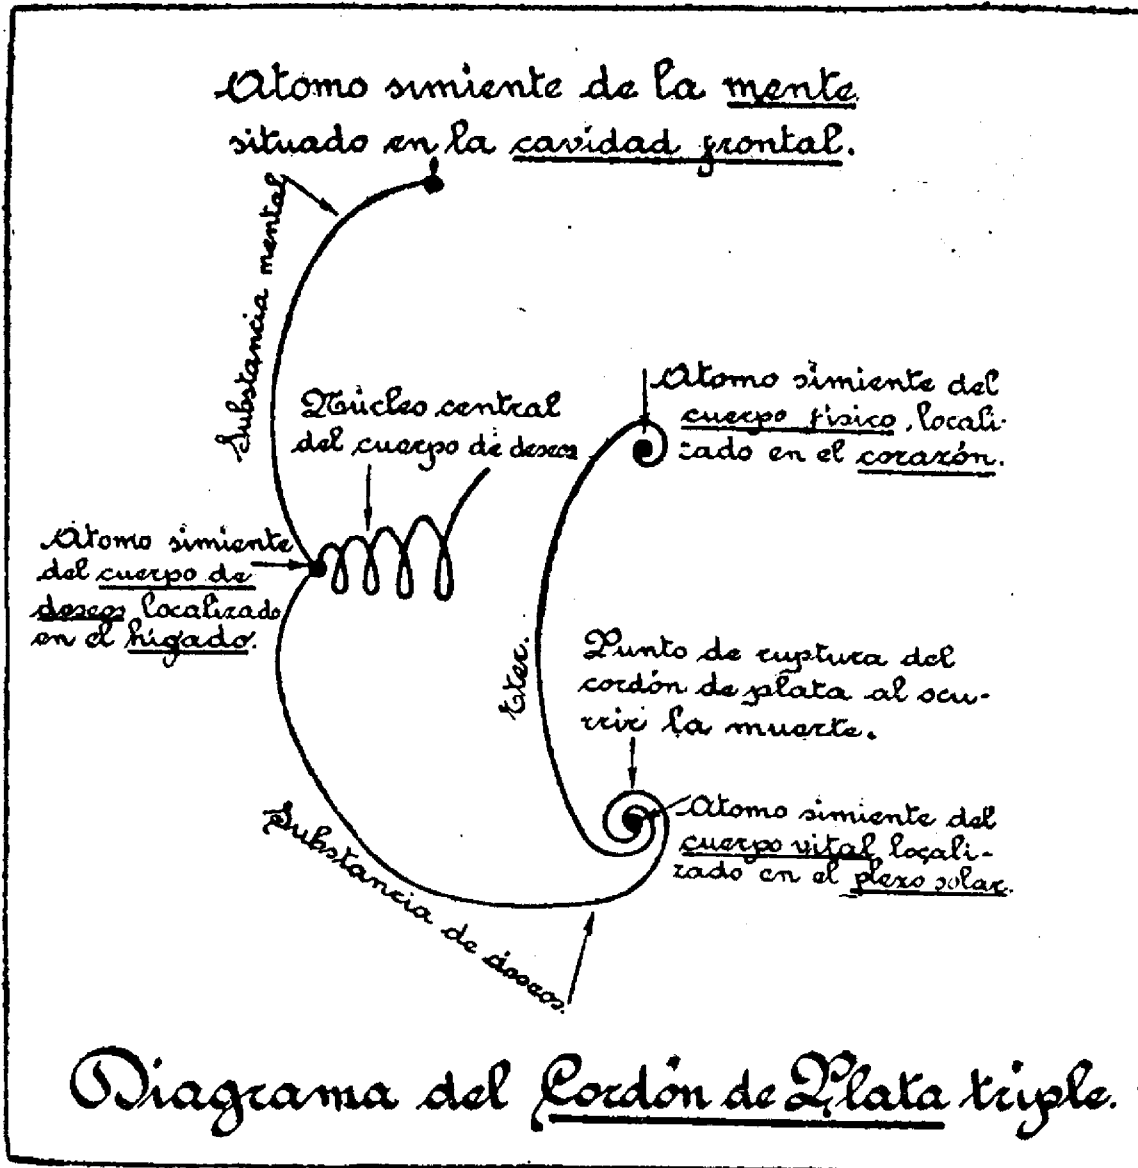 Atomo simiente de la mente
situado en la cavidad frontal.
Substancia mental
Núcleo central
del cuerpo de deseos
Atomo simiente del
cuerpo físico, locali-
zado en el corazón.
Atomo simiente
del cuerpo de
deseos localizado
en el hígado.
Eter.
Punto de ruptura del
cordón de plata al ocu-
rrir la muerte.
Atomo simiente del
cuerpo vital locali-
zado en el plexo solar.
Substancia de deseos.
Diagrama del Cordón de Plata triple.